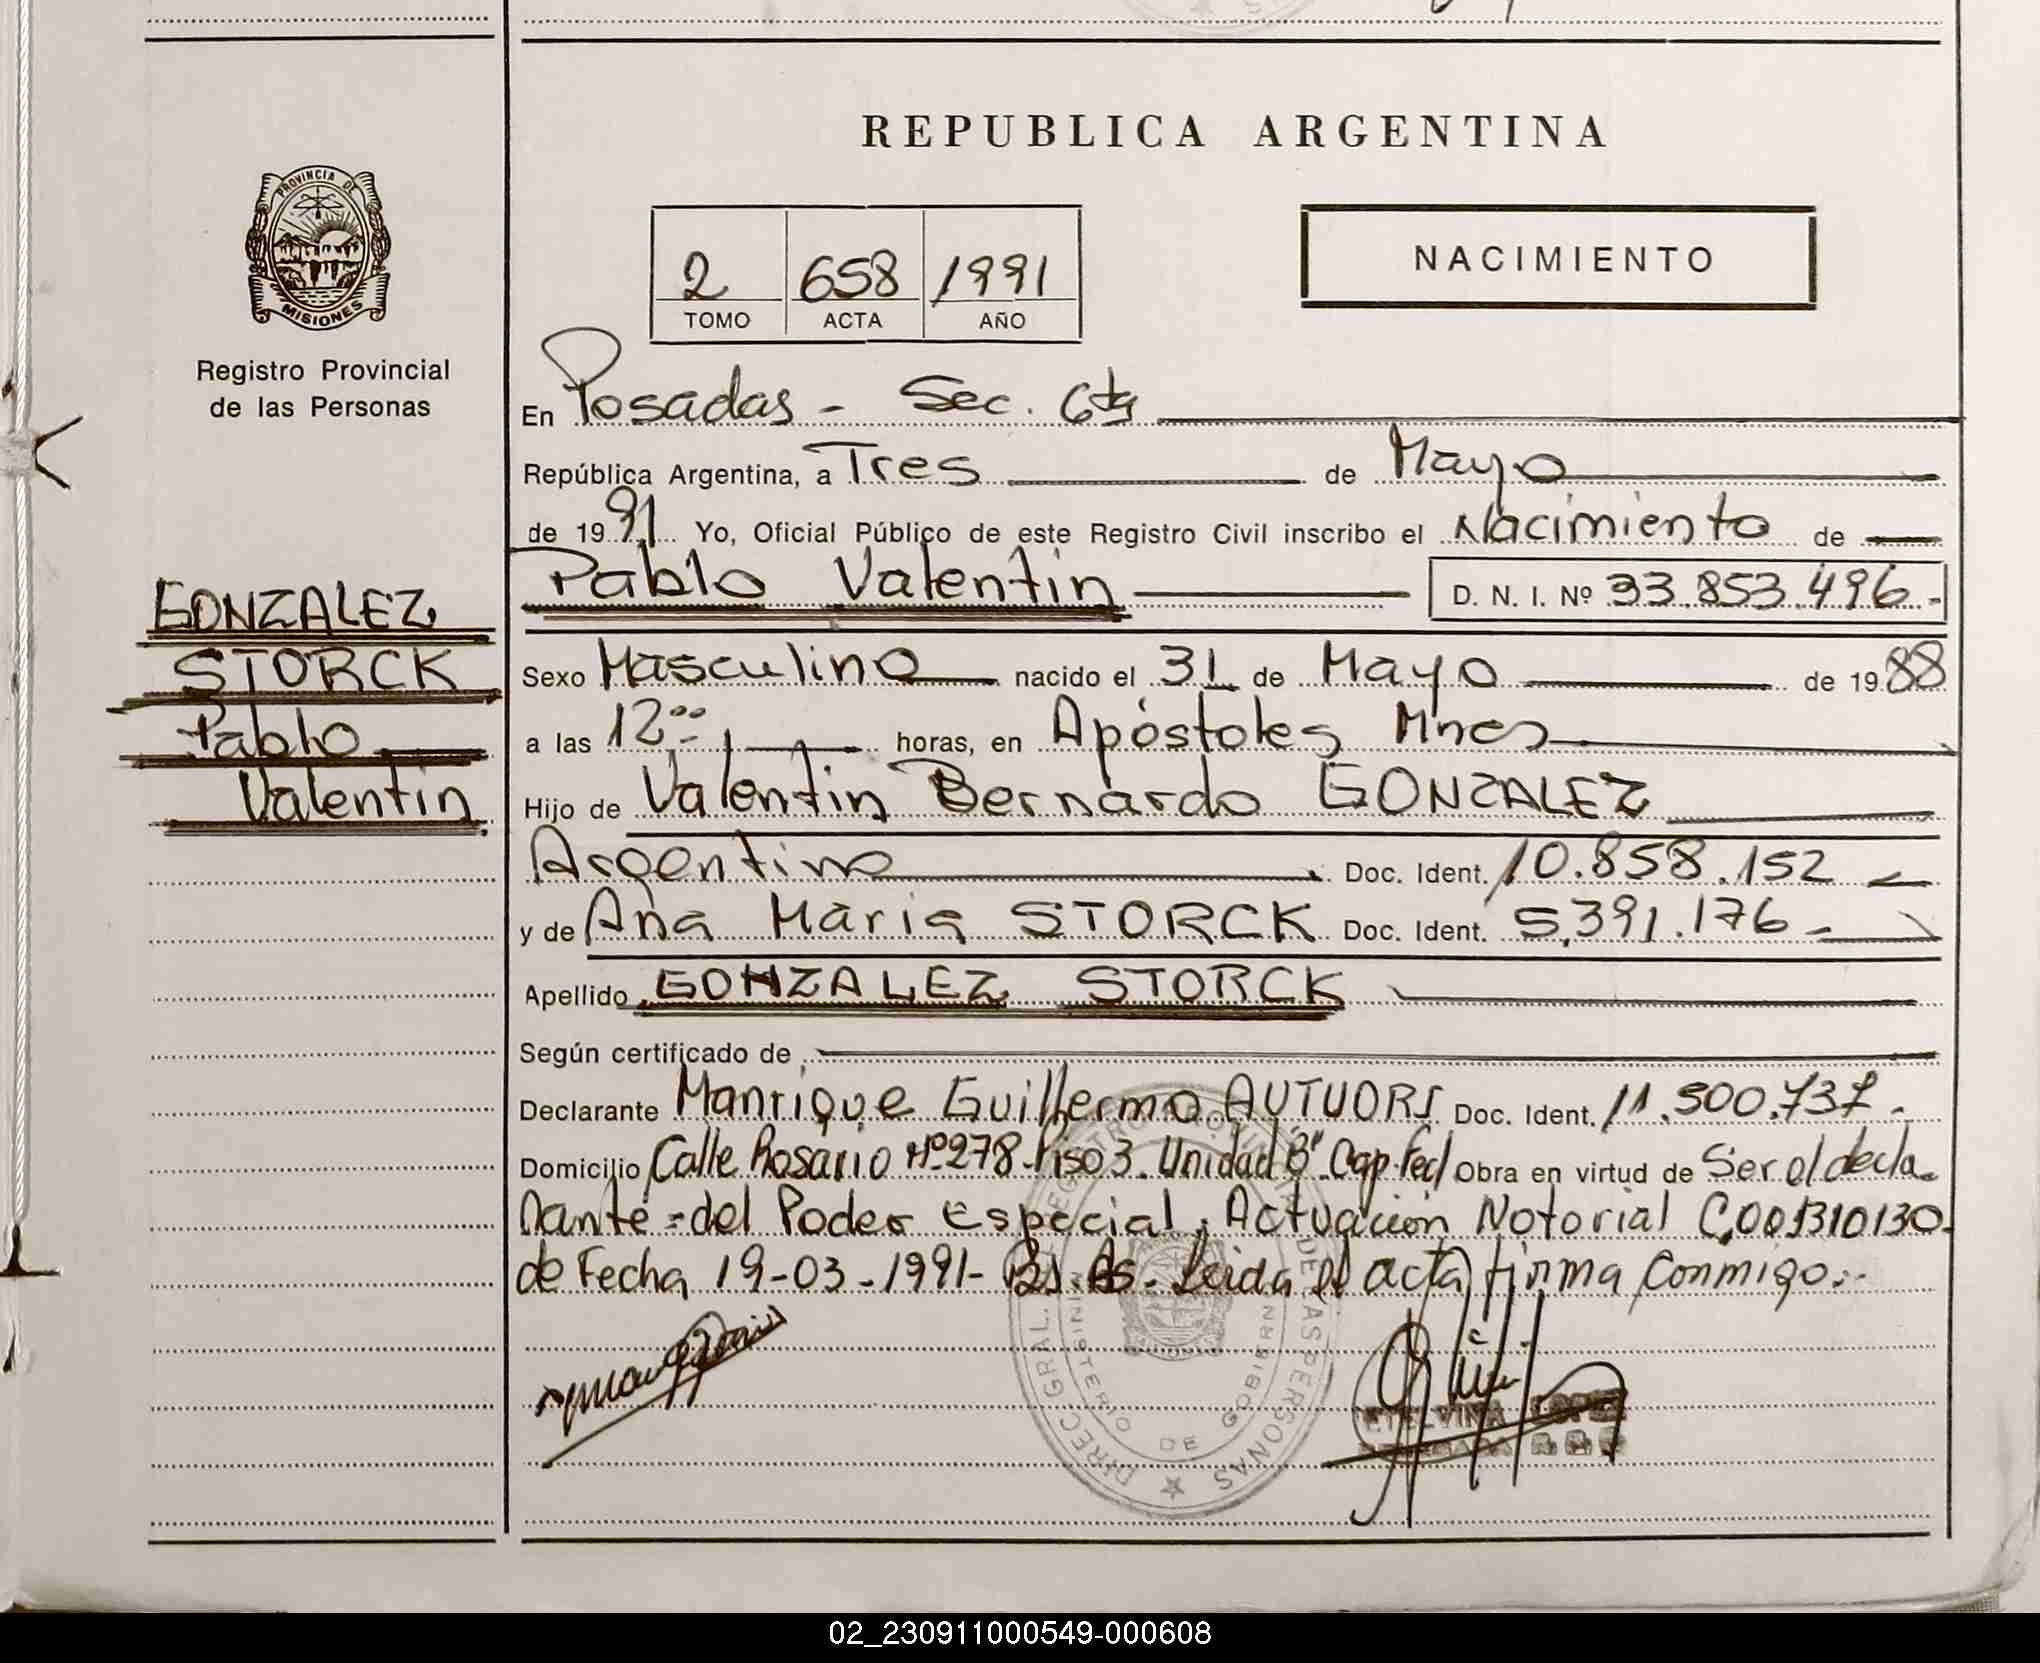 REPUBLICA ARGENTINA
PROVINCIA DE
MISIONES
Registro Provincial
de las Personas
NACIMIENTO
2 658 1991
TOMO ACTA AÑO
En Posadas - Sec. 6ta
República Argentina, a Tres de Mayo
de 1991 Yo, Oficial Público de este Registro Civil inscribo el Nacimiento de
Pablo Valentin D. N. I. Nº 33.853.496.-
GONZALEZ
STORCK
Pablo
Valentin
Sexo Masculino nacido el 31 de Mayo de 1988
a las 12:00 horas, en Apóstoles Mnes
Hijo de Valentin Bernardo GONZALEZ
Argentino Doc. Ident. 10.858.152
y de Ana Maria STORCK Doc. Ident. 5.391.176-
Apellido GONZALEZ STORCK
Según certificado de
Declarante Manrique Guillermo AUTUORI Doc. Ident. 11.500.737.
Domicilio Calle Rosario Nº 278-Piso 3. Unidad "B" Cap. Fed Obra en virtud de Ser el decla
rante - del Poder Especial, Actuación Notorial C.001310130.
de Fecha 19-03-1991- Bs. As- Leida el acta firma conmigo.-
DIREC. GRAL. DE LAS PERSONAS
MINISTERIO DE GOBIERN
ETELVINA LOPEZ
02_230911000549-000608